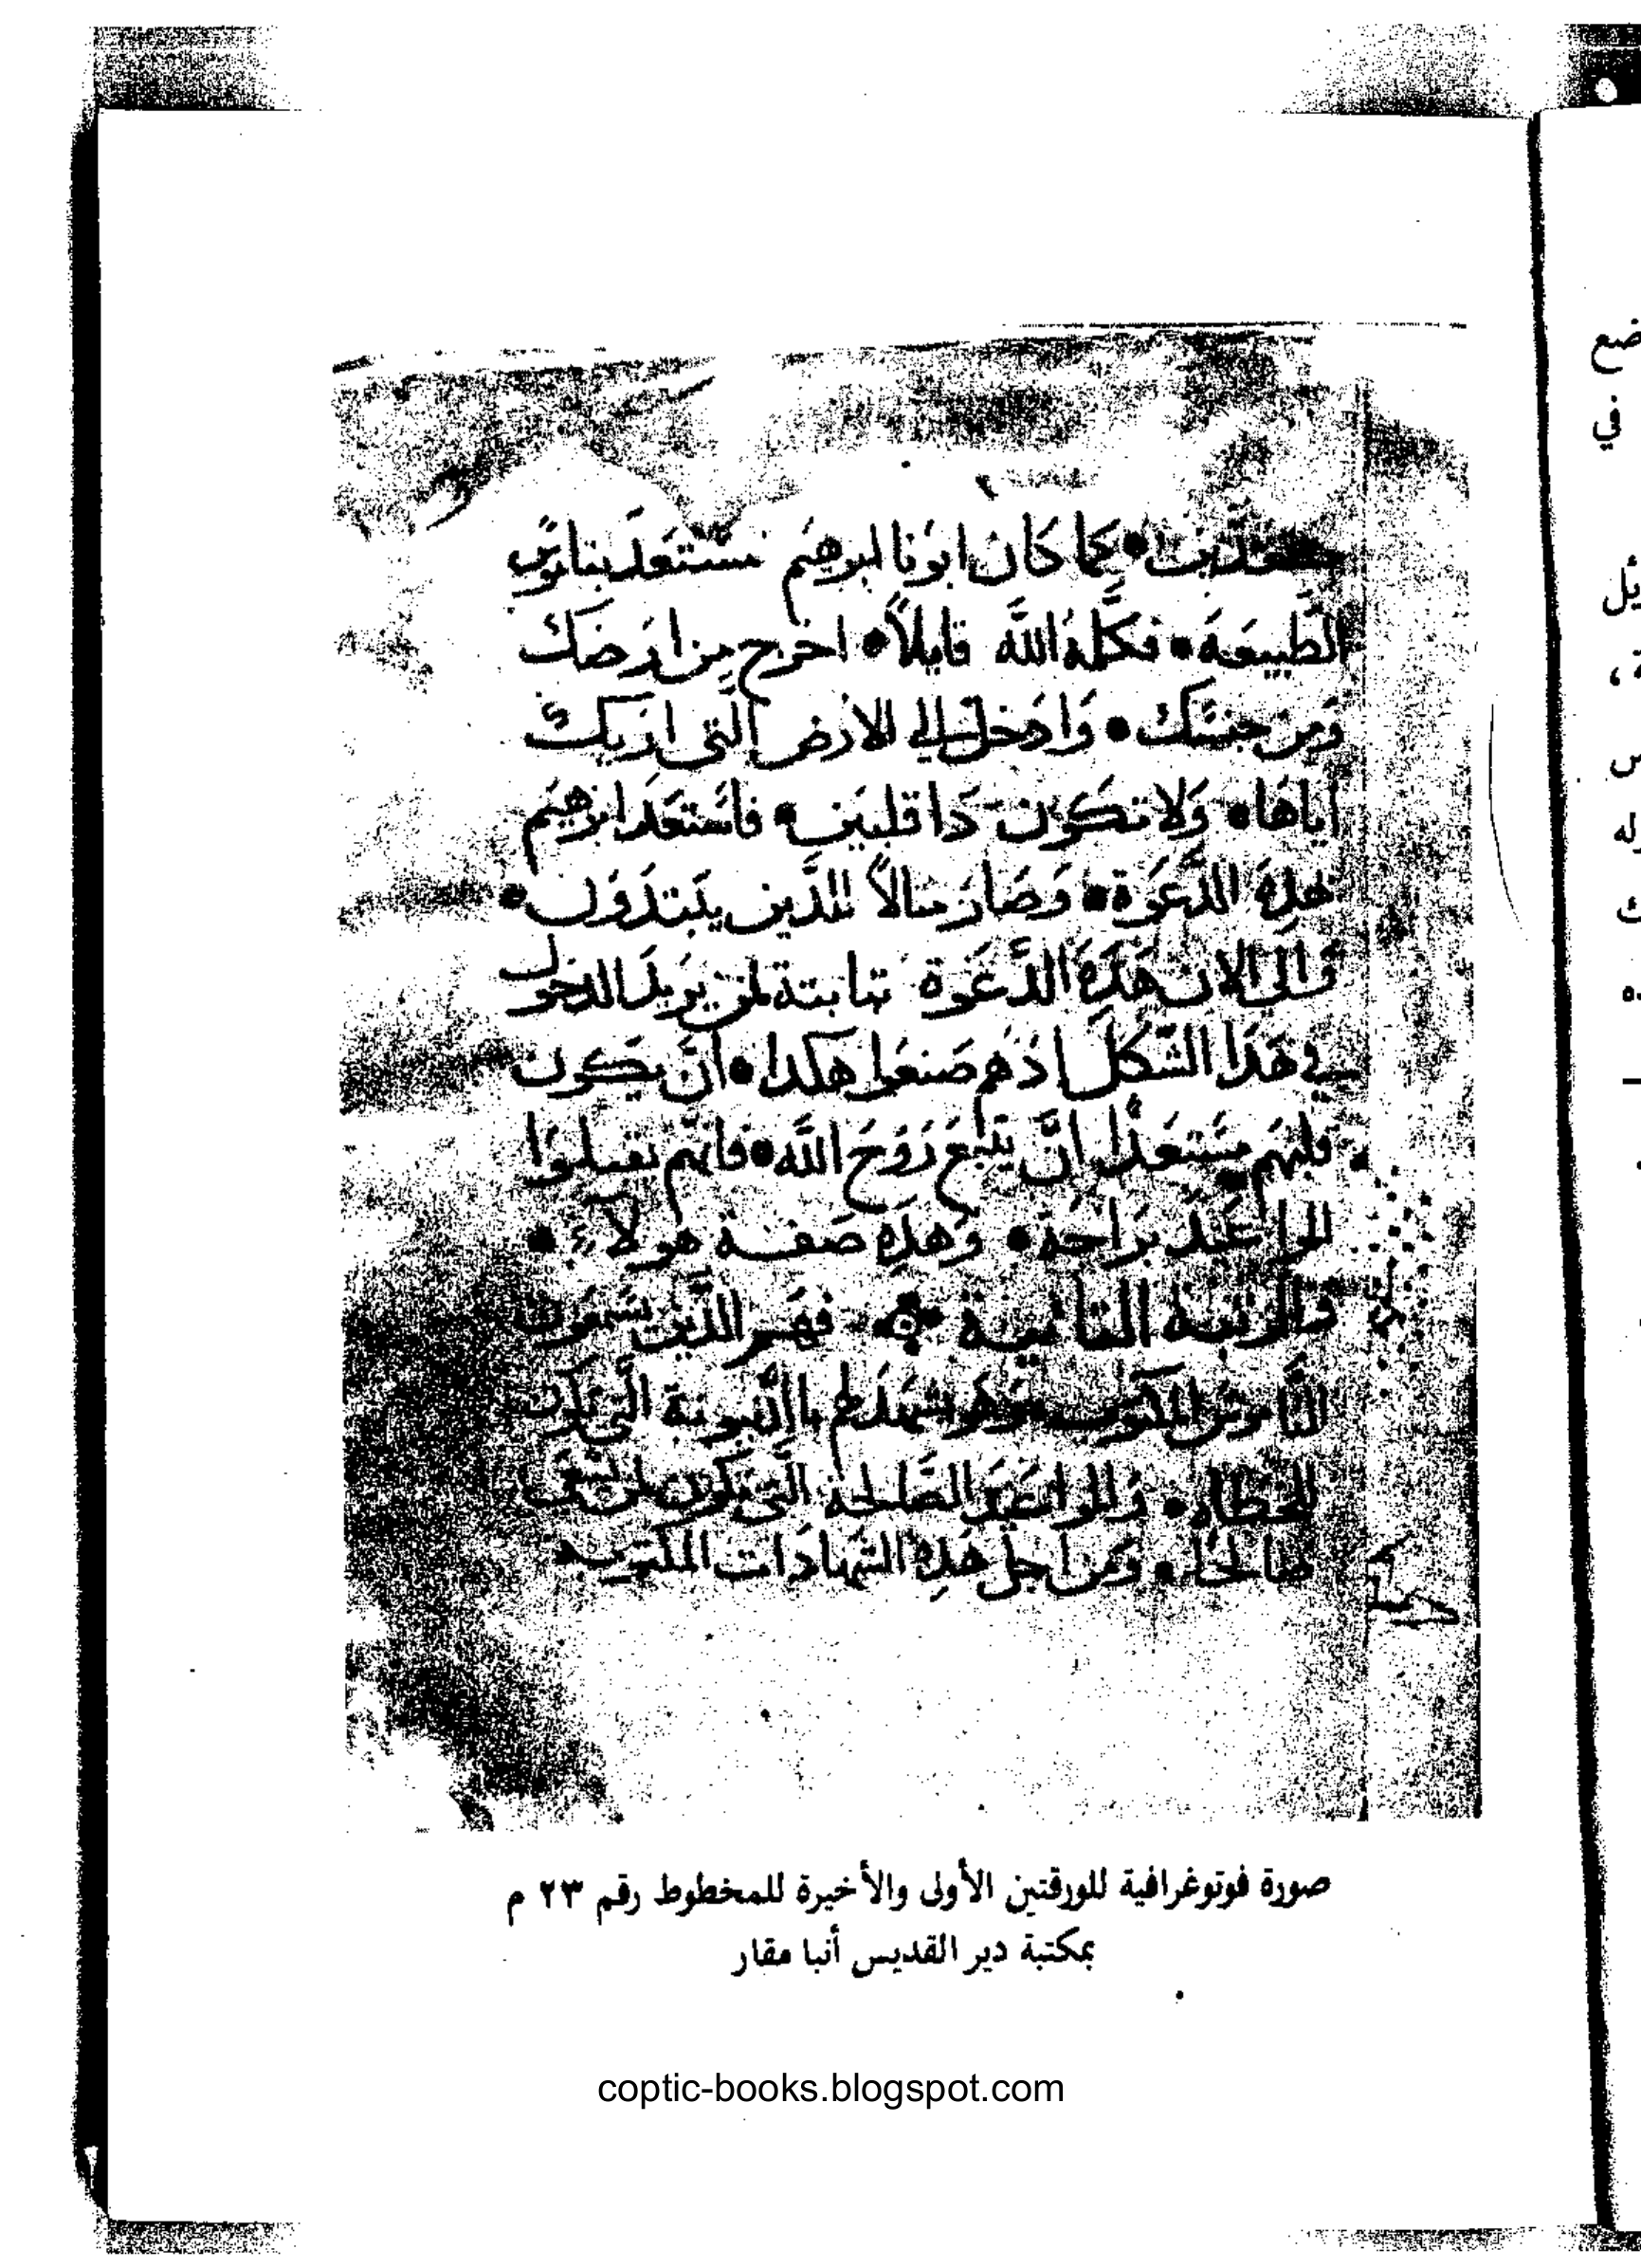 كما كان ابونا ابرهيم مستعد بناموس
الطبيعة • فكلمه الله قايلاً • اخرج من ارضك
ومن جنسك • وادخل الي الارض التي اريك
اياها • ولا تكون دا قلبين • فاستعد ابرهيم
هذه الدعوة • وصار مثالاً للذين يبتدون •
والى الان هذه الدعوة ثابتة لمن يريد الدخول
في هذا الشكل اذ هم صنعوا هكدا • ان يكون
قلبهم مستعداً ان يتبع روح الله • فانهم
براحة • وهذه صفة هولاء •
والرتبة الثانية • فهم الذين يسمعون
الناموس المكتوب وهو يشهد لهم
للخطاه • والمواعيد الصالحة التي تكون لمن
صالحًا • ومن اجل هذه الشهادات المكتوبه
صورة فوتوغرافية للورقتين الأولى والأخيرة للمخطوط رقم ٢٣ م
بمكتبة دير القديس أنبا مقار
coptic-books.blogspot.com
ضع
في
يل